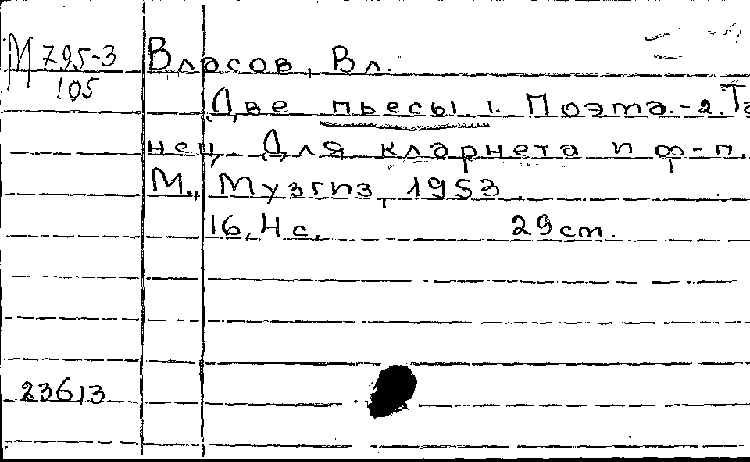 М 795-3
105
Власов, Вл.
Две пьесы 1. Поэта.-2. Та
нец. Для кларнета и ф-п.
М., Музгиз, 1953.
16,4 с. 29 cm.
23613